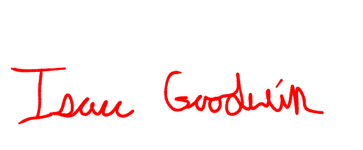 Isaac Goodwin